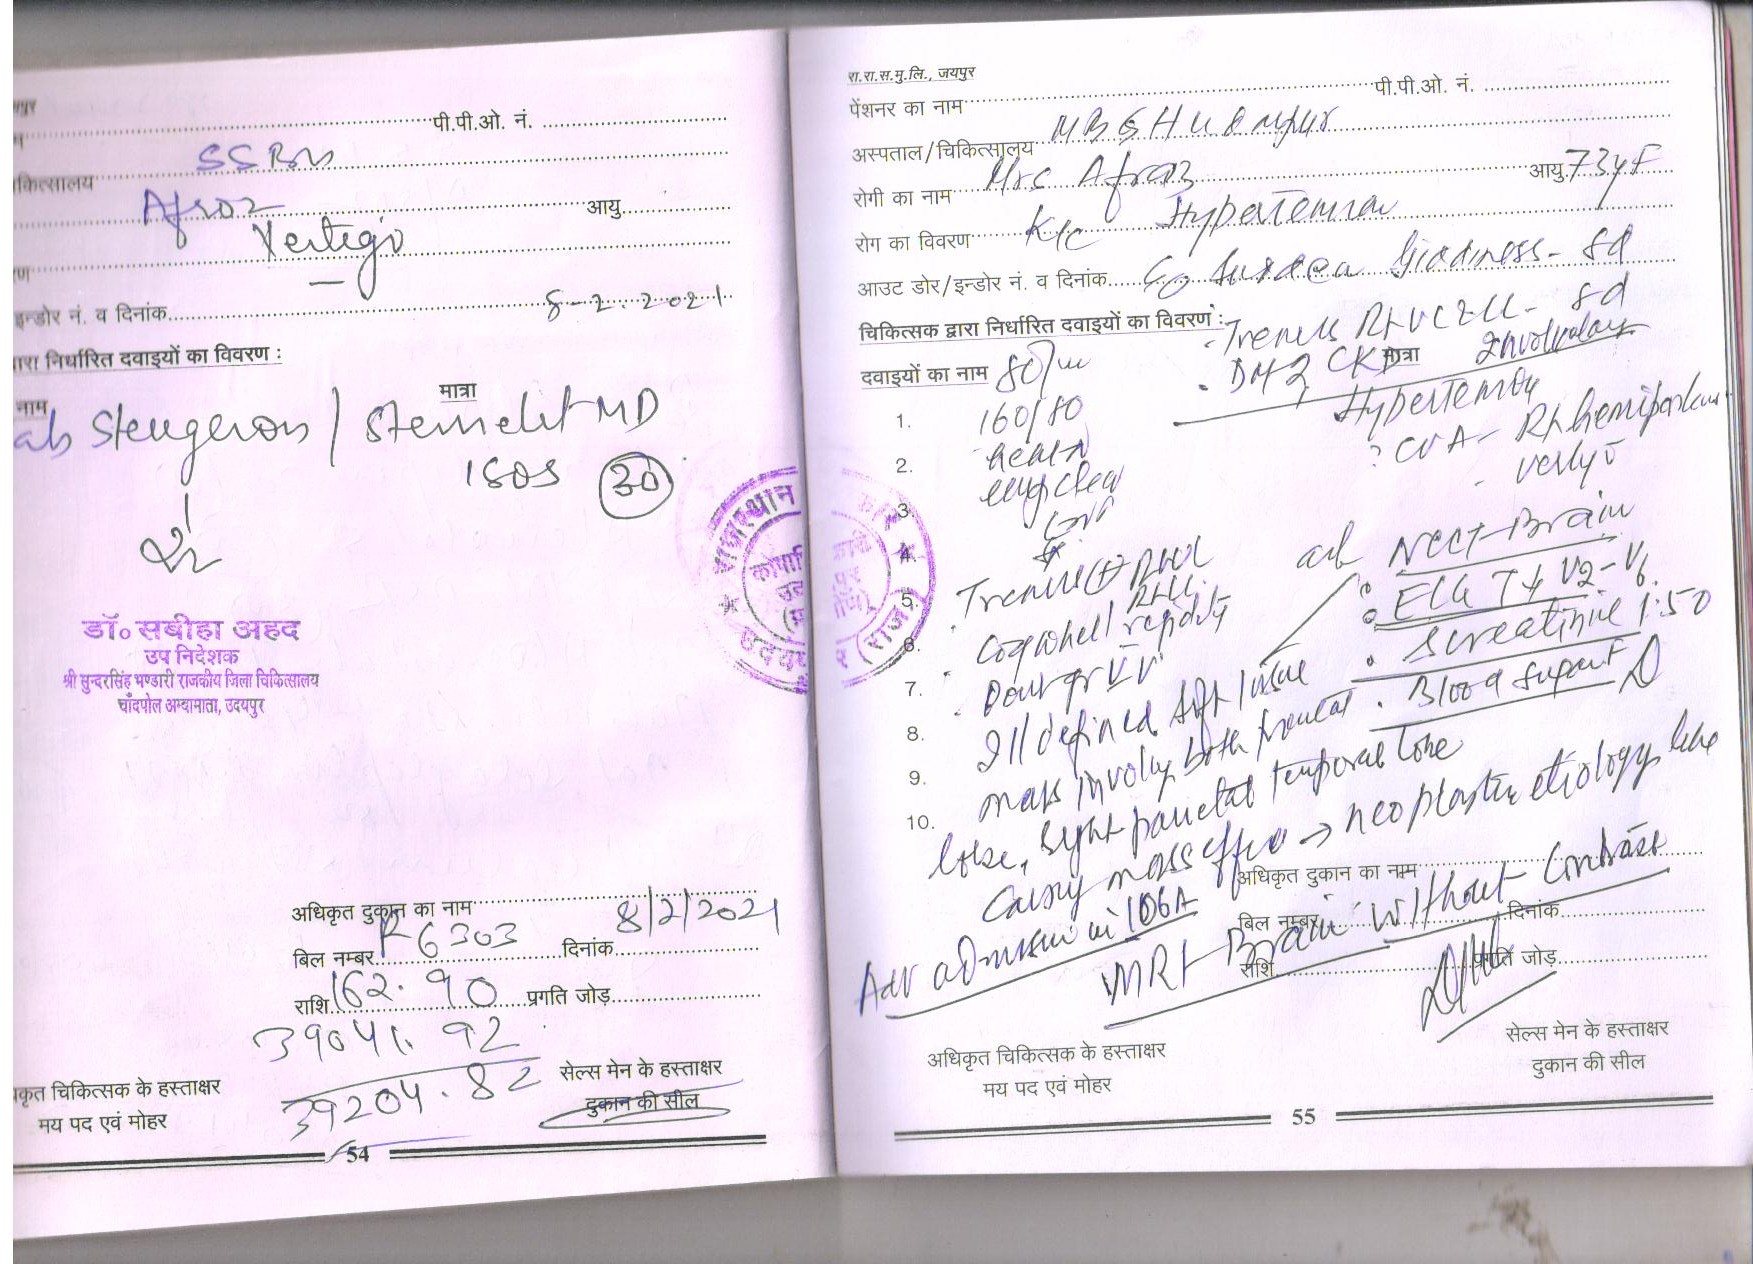 पी.पी.ओ. नं.
SSBH
कित्सालय
Afroz
आयु
Vertigo
इन्डोर नं. व दिनांक
8-2.2021
ारा निर्धारित दवाइयों का विवरण :
नाम
मात्रा
Stugeron / Stemetil MD
1 SOS 30
डॉ० सबीहा अहद
उप निदेशक
श्री सुन्दरसिंह भण्डारी राजकीय जिला चिकित्सालय
चाँदपोल अम्बामाता, उदयपुर
अधिकृत दुकान का नाम
बिल नम्बर R6303 दिनांक 8/2/2021
राशि 162.90 प्रगति जोड़
39041.92
39204.82
सेल्स मेन के हस्ताक्षर
दुकान की सील
कृत चिकित्सक के हस्ताक्षर
मय पद एवं मोहर
54
रा.रा.स.मु.लि., जयपुर
पेंशनर का नाम
पी.पी.ओ. नं.
अस्पताल/चिकित्सालय MBGH Udaipur
रोगी का नाम Mrs Afroz आयु 73yF
रोग का विवरण K/C Hypertension
आउट डोर/इन्डोर नं. व दिनांक C/O Sudden Giddiness - 8d
चिकित्सक द्वारा निर्धारित दवाइयों का विवरण :
8d
दवाइयों का नाम 80/m
मात्रा
DM2 CKD
Hypertension
1. 160/80
? CVA - Rt hemiparesis
2. Heart N
Vertigo
3. lung clear
4.
NCCT-Brain
5.
ECG T↓ V2-V6
6. Cogwheel rigidity
S creatinine 1.50
7.
Blood Sugar F
8. Ill defined soft tissue
9. mass involving both frontal
10. lobe, right parietal temporal lobe
Causing mass effect → neoplastic etiology like
Adv admission in 106A
MRI - Brain Without - Contrast
अधिकृत दुकान का नाम
बिल नम्बर
दिनांक
राशि
प्रगति जोड़
सेल्स मेन के हस्ताक्षर
दुकान की सील
अधिकृत चिकित्सक के हस्ताक्षर
मय पद एवं मोहर
55